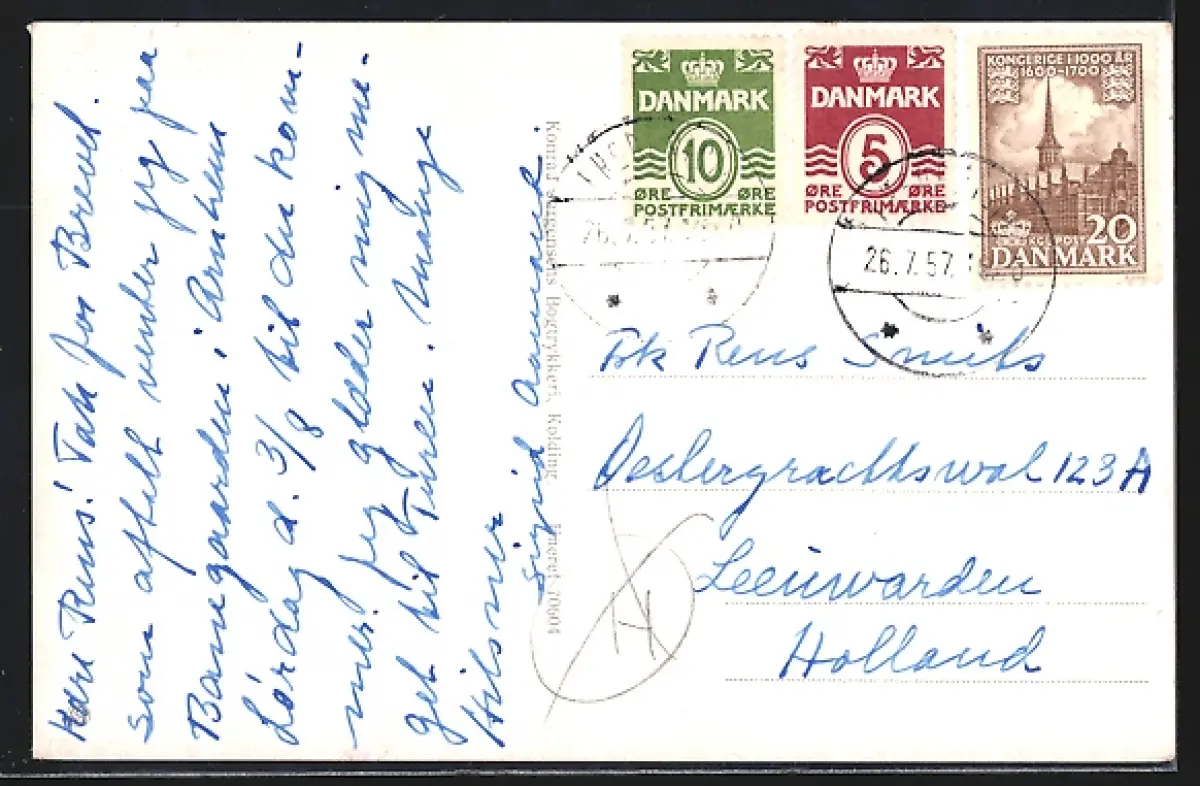 Kære Rens! Tak for Brevet.
som aftalt venter jeg paa
Banegaarden i Arnhem
Lørdag d. 3/8 til du kom-
mer, jeg glæder mig me-
get til Turen. Mange
Hilsner
Sigrid
Konrad Jørgensens Bogtrykkeri, Kolding Eneret 70604
DANMARK
10
ØRE ØRE
POSTFRIMÆRKE
DANMARK
5
ØRE ØRE
POSTFRIMÆRKE
KONGERIGE I 1000 ÅR
1600-1700
BØRGE POST 20
DANMARK
26.7.57
26.7.57.
Rens Smets
Oestergrachtswal 123A
Leeuwarden
Holland